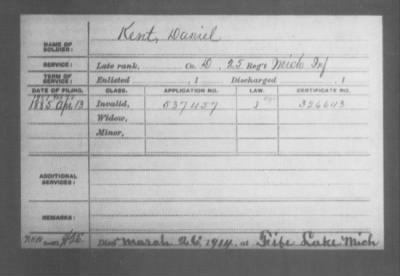 Kent, Daniel
NAME OF SOLDIER:
SERVICE: Late rank, Co. D, 25 Reg't Mich Inf
TERM OF SERVICE: Enlisted , 1 Discharged , 1
DATE OF FILING. CLASS. APPLICATION NO. LAW. CERTIFICATE NO.
1885 Apr 13 Invalid, 537457 326643
Widow,
Minor,
ADDITIONAL SERVICES:
REMARKS:
Died March 26, 1914, at Fife Lake Mich